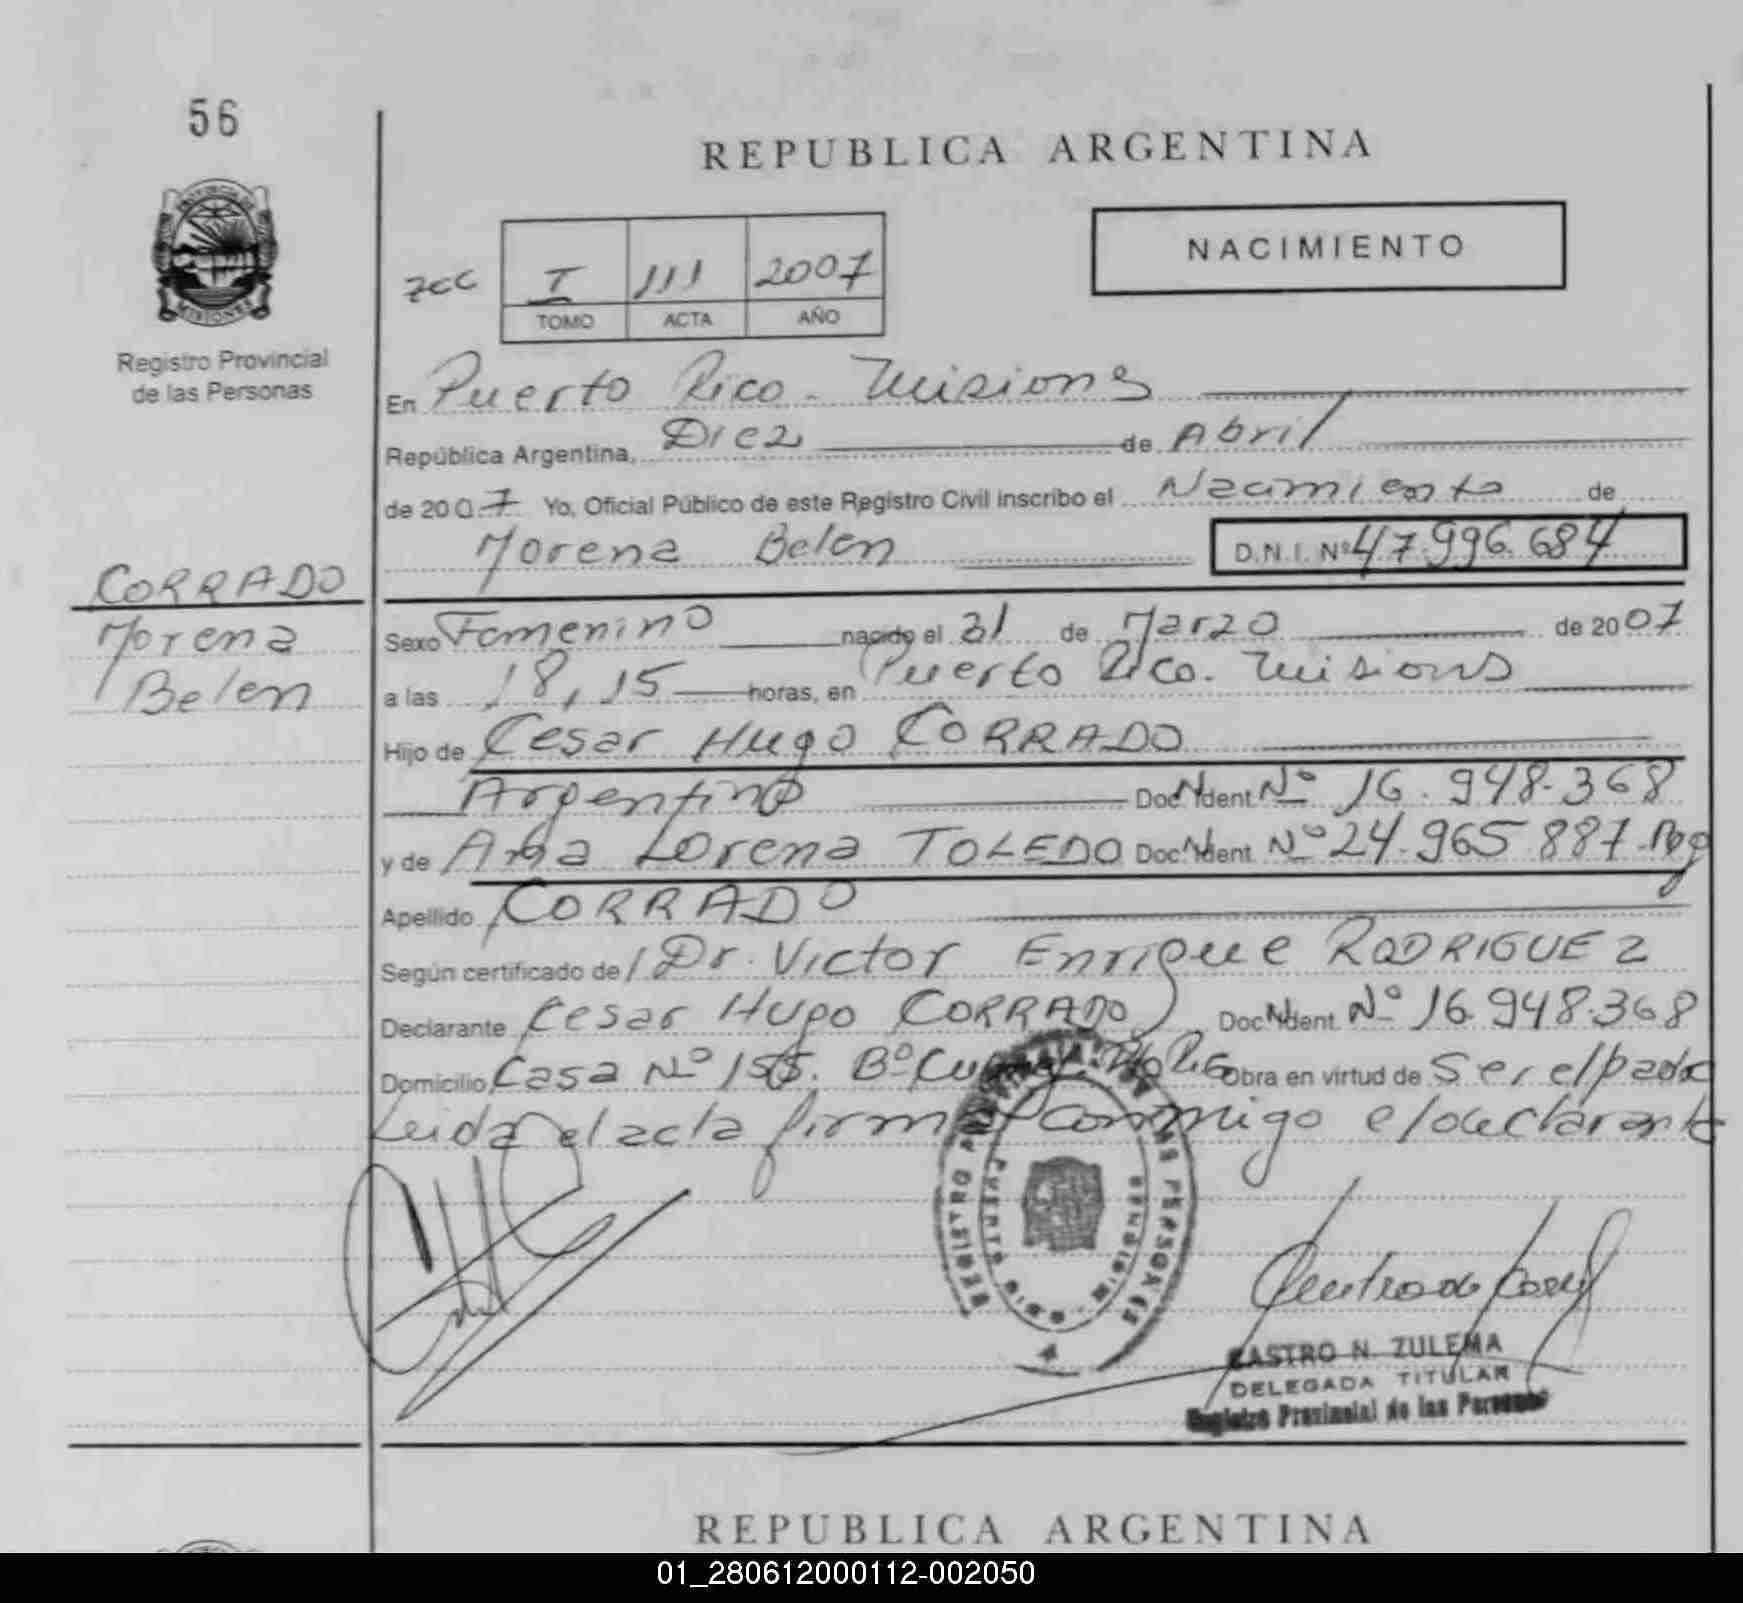 56
REPUBLICA ARGENTINA
PROVINCIA DE
MISIONES
Registro Provincial
de las Personas
NACIMIENTO
7CC I 111 2007
TOMO ACTA AÑO
En Puerto Rico - Misiones
República Argentina, Diez de Abril
de 2007 Yo, Oficial Público de este Registro Civil inscribo el Nacimiento de
Morena Belen D.N.I. Nº 47.996.684
CORRADO
Morena
Belen
Sexo Femenino nacido el 31 de Marzo de 2007
a las 18,15 horas, en Puerto Rico. Misiones
Hijo de Cesar Hugo CORRADO
Argentino Doc. Ident. Nº 16.948.368
y de Ana Lorena TOLEDO Doc. Ident. Nº 24.965.887. Arg
Apellido CORRADO
Según certificado de Dr. Victor Enrique RODRIGUEZ
Declarante Cesar Hugo CORRADO Doc. Ident. Nº 16.948.368
Domicilio Casa Nº 155. Bº Obra en virtud de Ser el padre
Leida el acta firma conmigo el declarante
REGISTRO DE LAS PERSONAS
PUERTO RICO - MISIONES
CASTRO N. ZULEMA
DELEGADA TITULAR
Registro Provincial de las Personas
REPUBLICA ARGENTINA
01_280612000112-002050